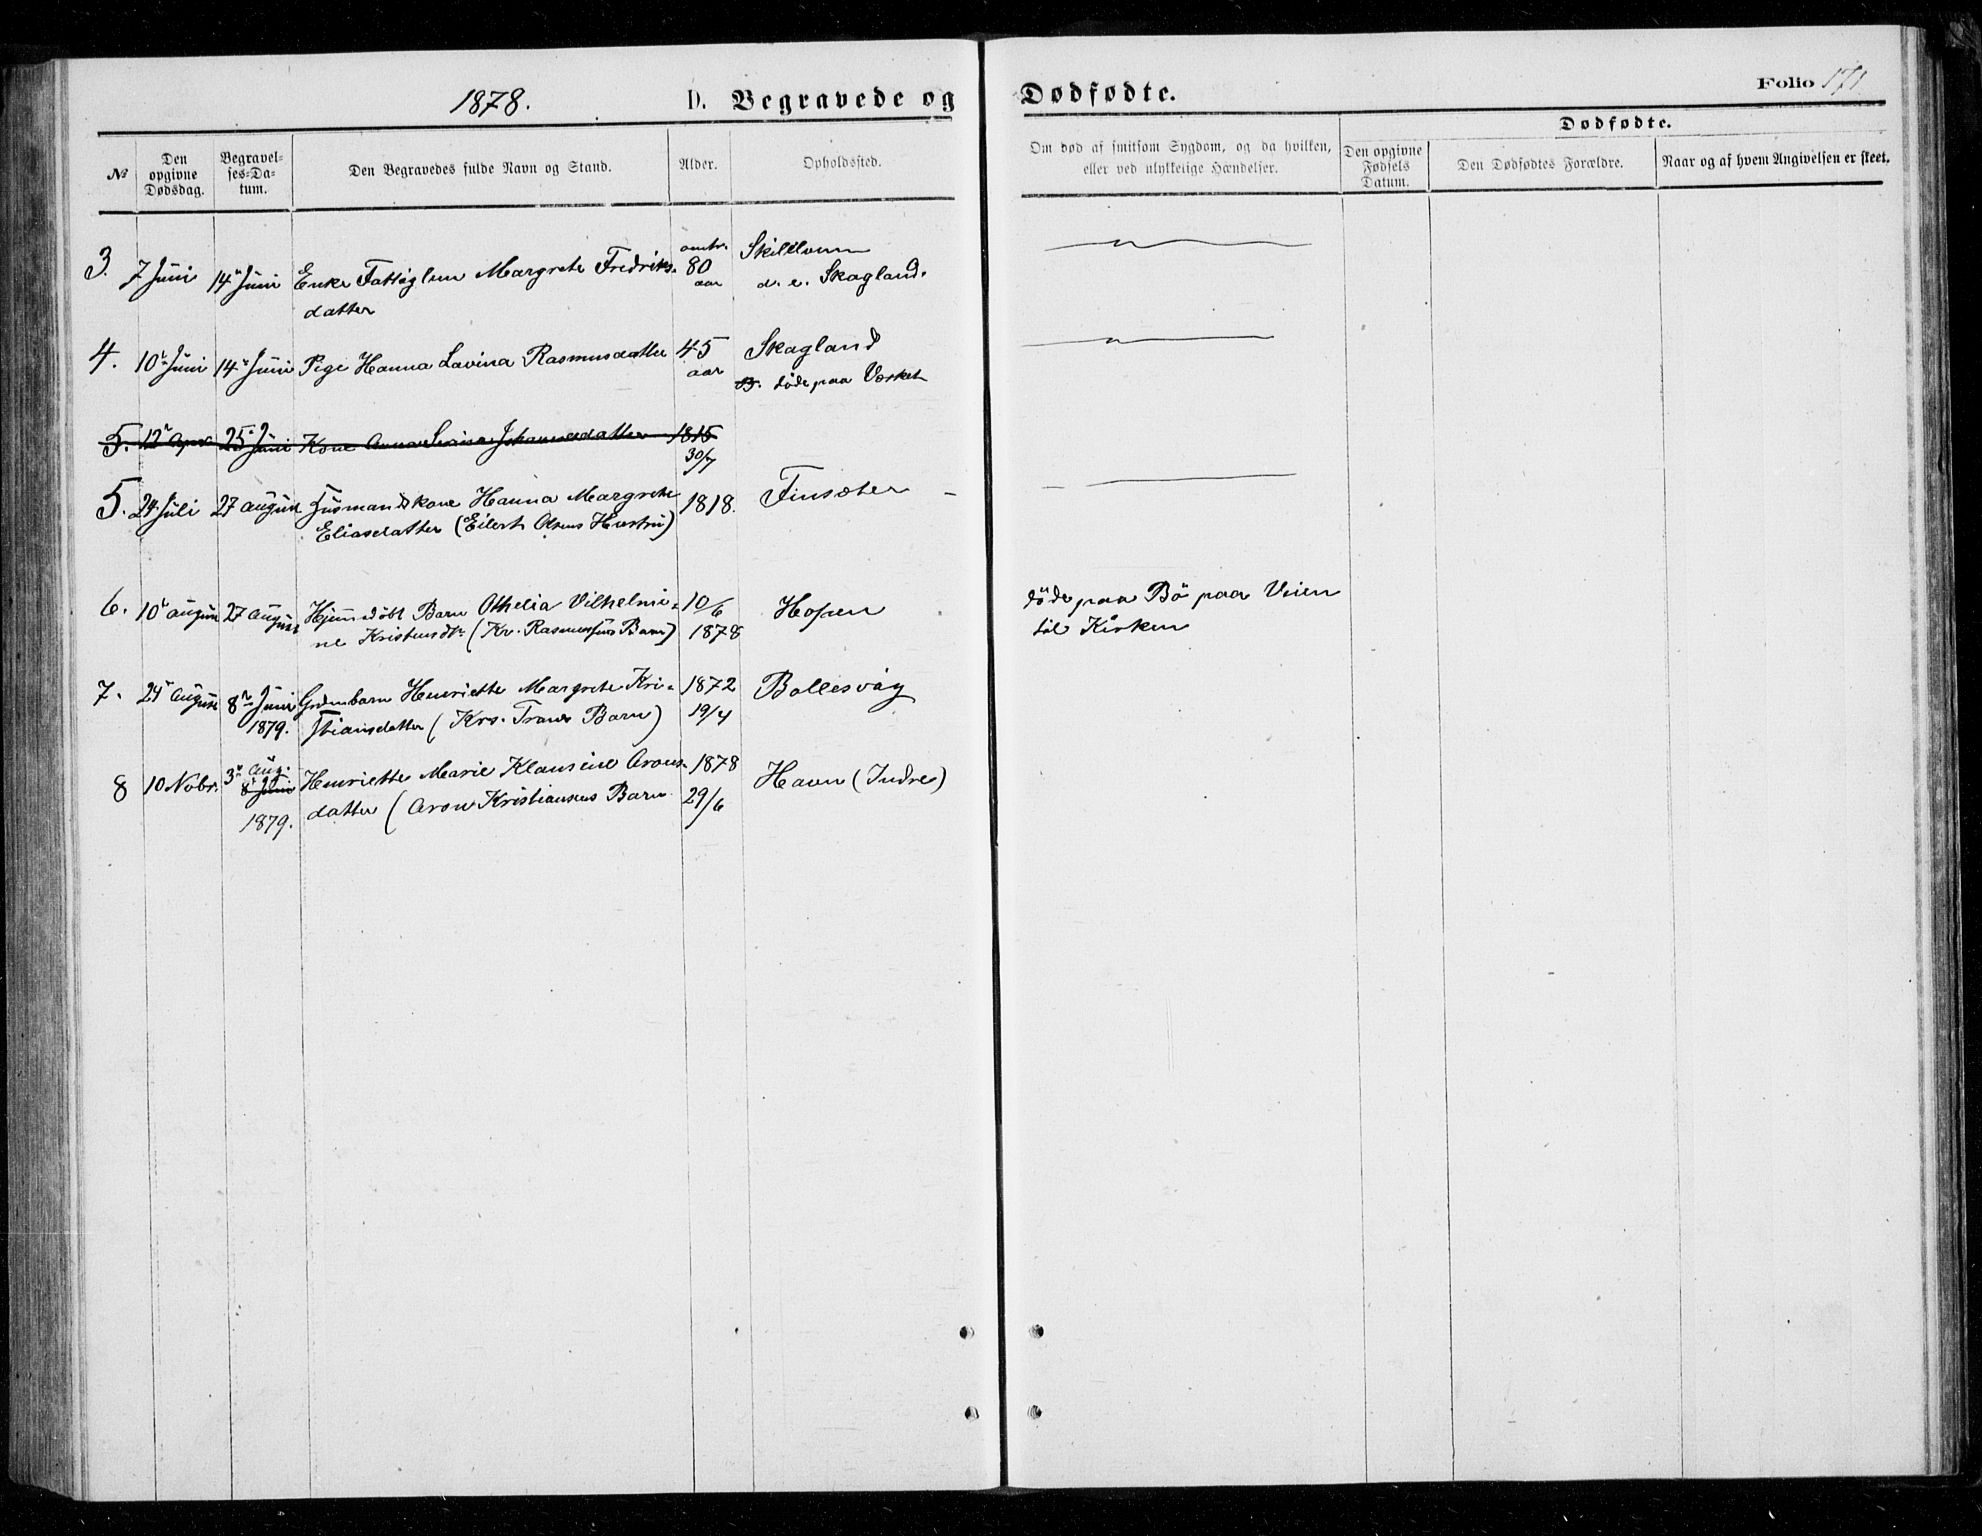 1878. D. Begravede og Dødfødte. Folio 171
Dødfødte.
№
Den opgivne Dødsdag.
Begravelses-Datum.
Den Begravedes fulde Navn og Stand.
Alder.
Opholdssted.
Om død af smitsom Sygdom, og da hvilken,
eller ved ulykkelige Hændelser.
Den opgivne Fødsels Datum.
Den Dødfødtes Forældre.
Naar og af hvem Angivelsen er skeet.
3. 7 Juni 14 Juni Enke Fattiglem Margrete Fredriks-
datter
omtr. 80 aar
d. e. Skagland.
4. 10 Juni 14 Juni Pige Hanna Lavina Rasmusdatter 45 aar Skagland
døde paa Værket
5. 12 April 25 Juni Kone Johannesdatter 1815
30/7
5. 24 Juli 27 august Husmandskone Hanna Margrete 1818. Finsæter
Eliasdatter (Eilert Olsens Hustru)
6. 10 august 27 august Hjemmedöbt Barn Othelia Vilhelmi- 10/6 Hopen döde paa Bö paa Veien
ne Kristensdtr (Kr. Rasmussens Barn) 1878 til Kirken
7. 24 August 8 Juni Henriette Margrete Kri- 1872 Ballesvåg
1879. stiansdatter ( Krs. Tranes Barn) 19/4
8 10 Nobr. 3 Aug. Henriette Marie Klausine Arons- 1878 Havn (Indre)
8 Juni datter (Aron Kristiansens Barn 29/6
1879.